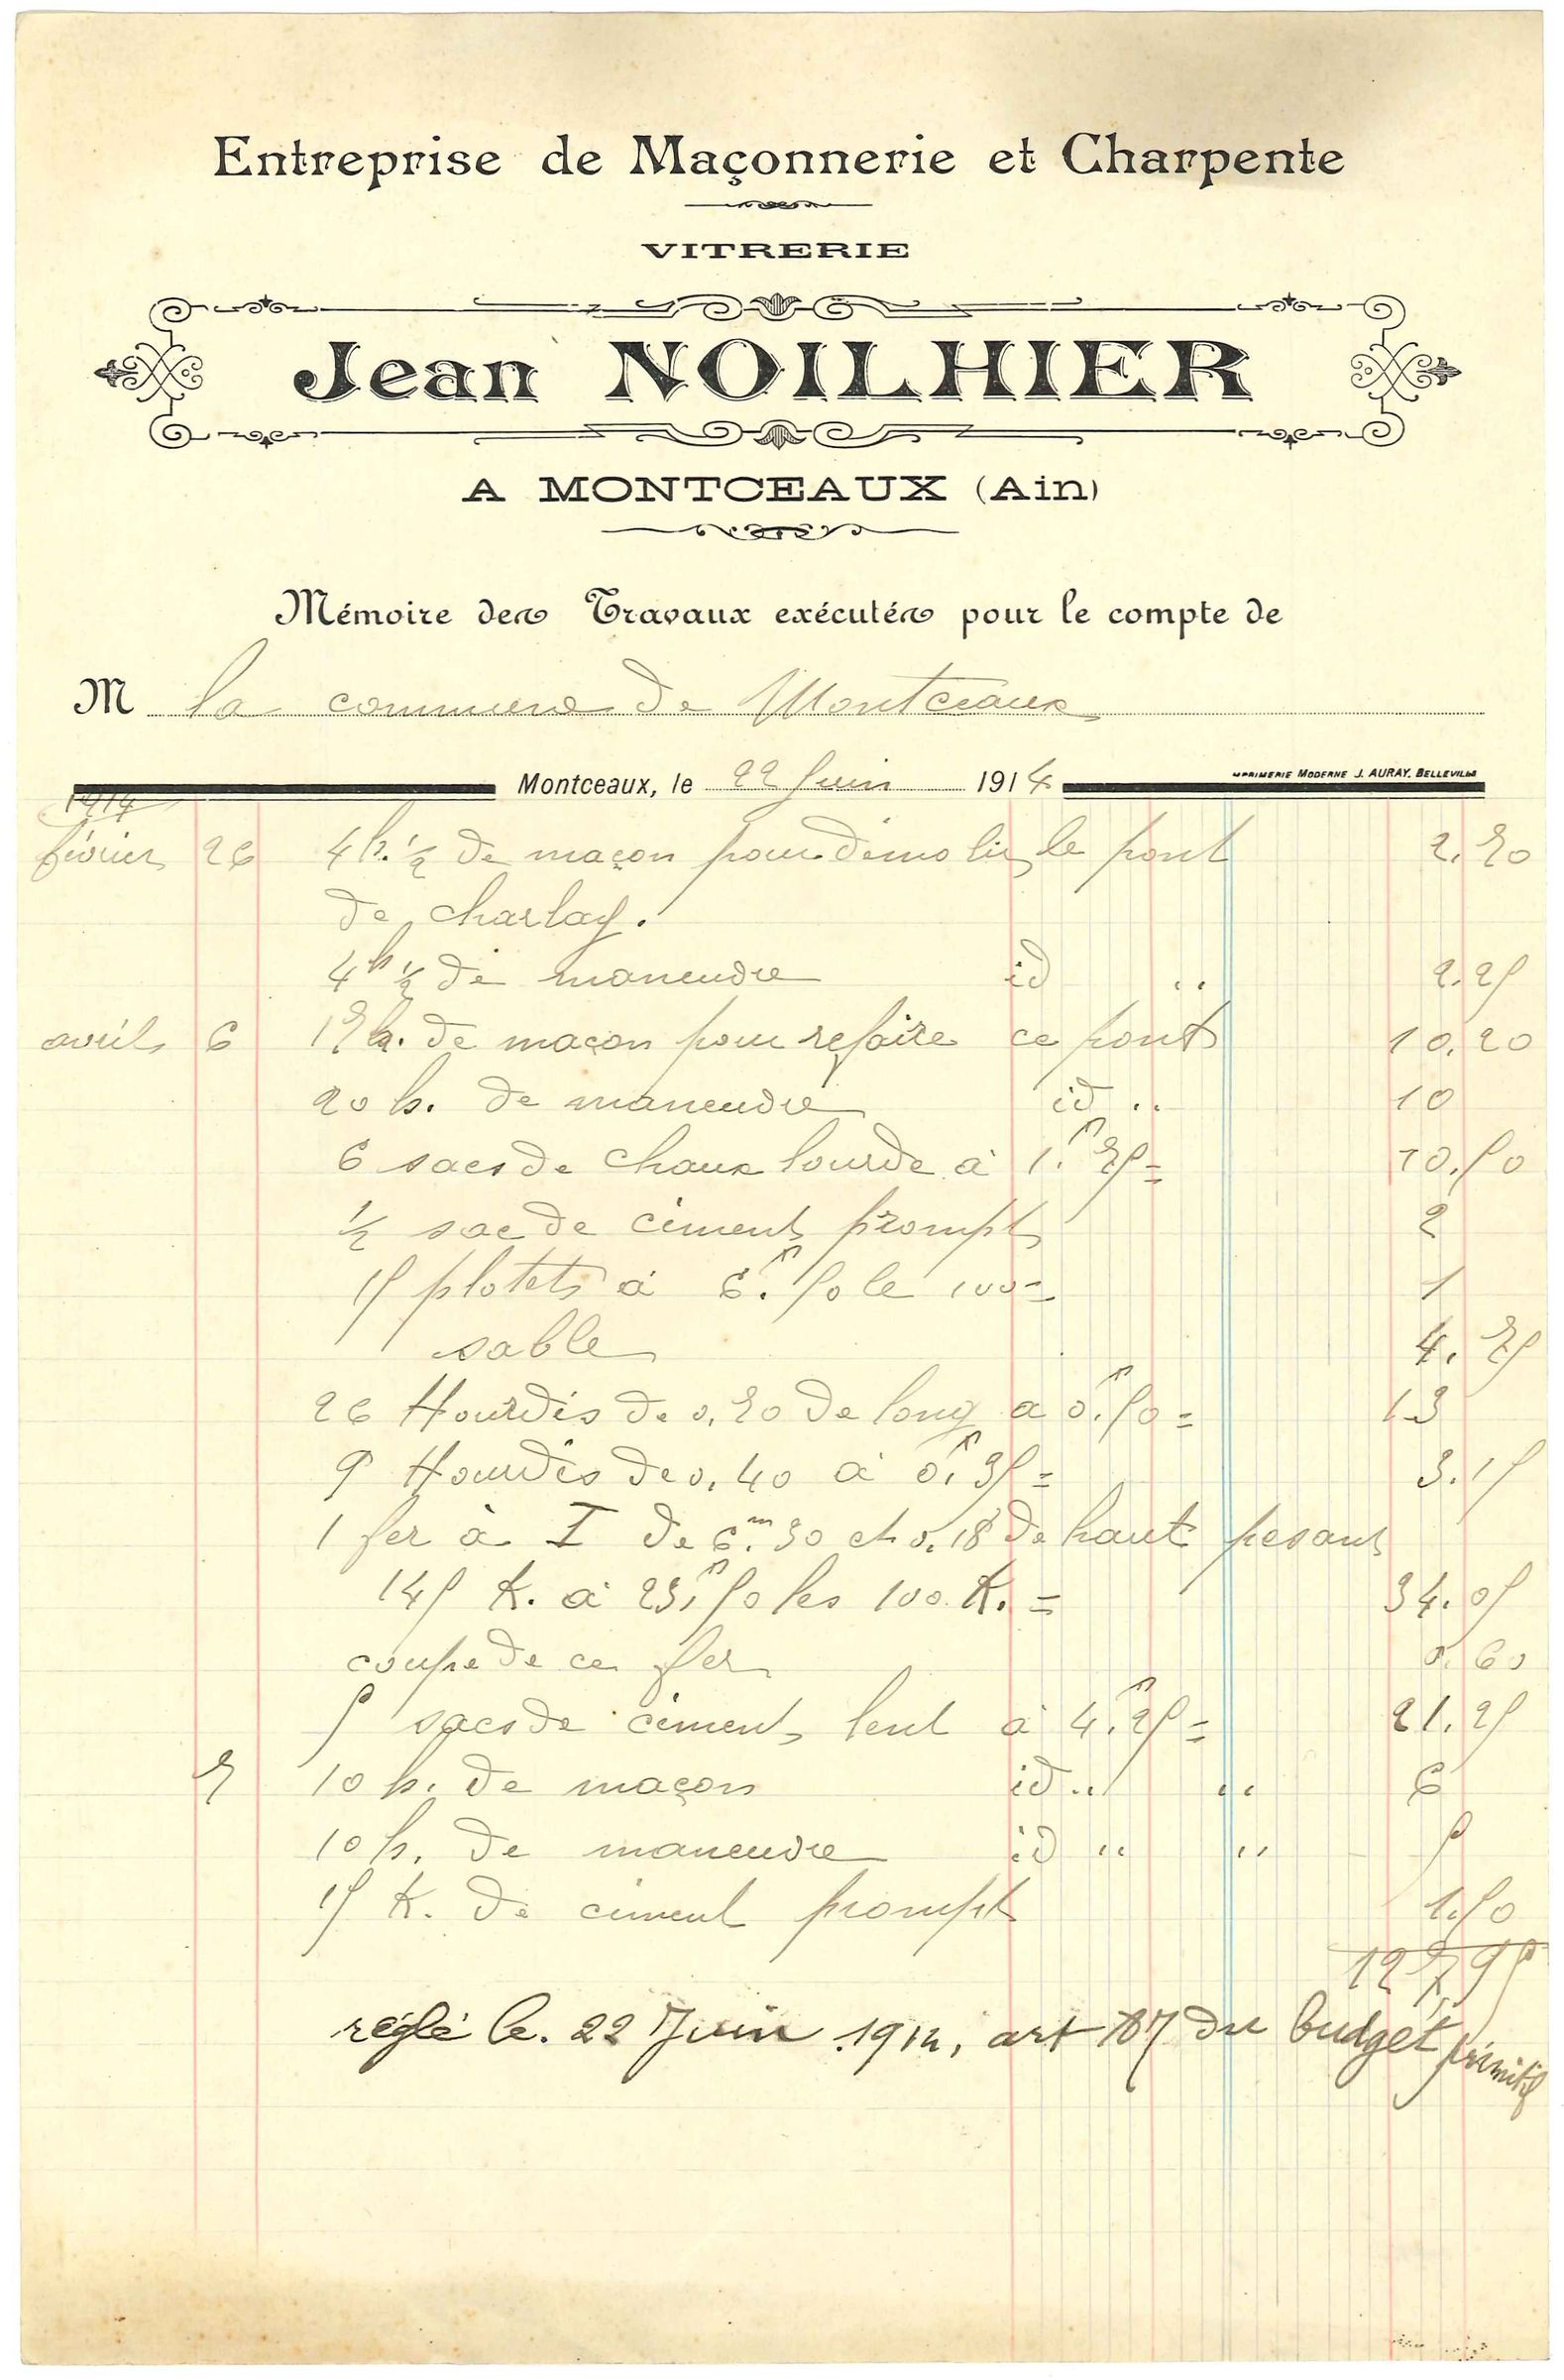 Entreprise de Maçonnerie et Charpente
VITRERIE
Jean NOILHIER
A MONTCEAUX (Ain)
Mémoire des Travaux exécutés pour le compte de
M la commune de Montceaux
Montceaux, le 22 Juin 1914
IMPRIMERIE MODERNE J. AURAY. BELLEVILLE
1914
février 26 4h. ½ de maçon pour démolir le pont 2.70
de charlay.
4h ½ de maneuvre id " 2.25
avril 6 17h. de maçon pour refaire ce pont 10.20
20 h. de maneuvre id " 10
6 sacs de chaux lourde à 1.f 75 = 10.50
½ sac de ciment prompt 2
15 plotets à 6.f 50 le 100 = 1
sable 4.75
26 Hourdis de 0,70 de long à 0.f 50 = 13
9 Hourdis de 0,40 à 0.f 35 = 3.15
1 fer à I de 6.m 30 et 0.18 de haut pesant
145 K. à 23.f 50 les 100 K. = 34.05
coupe de ce fer 0.60
5 sacs de ciment lent à 4.f 25 = 21.25
7 10 h. de maçon id " " 6
10 h. de maneuvre id " " 5
15 K. de ciment prompt 1.50
127,95
réglé le. 22 Juin 1914, art du budget primitif